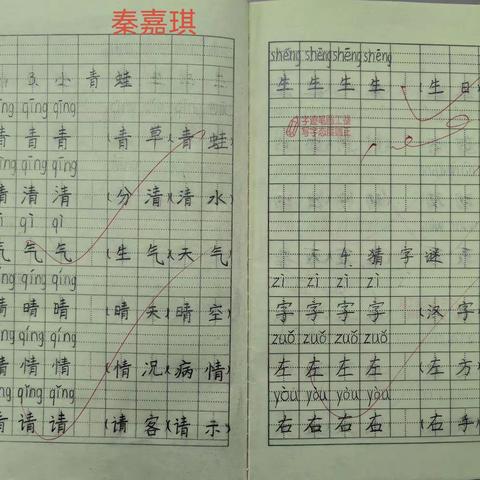 秦嘉琪
3. 小 青 蛙
qīng qīng qīng
青 青 青 (青 草)(青 蛙
qīng qīng qīng
清 清 清 (分 清)(清 水
qì qì
气 气 气 (生 气)(天 气
qíng qíng qíng
晴 晴 晴 (晴 天)(晴 空
qíng qíng qíng
情 情 情 (情 况)(病 情
qǐng qǐng qǐng
请 请 请 (请 客)(请 示
shēng shēng shēng shēng
生 生 生 生 (生 日
4. 猜 字 谜
zì zì zì zì
字 字 字 字 (汉 字
zuǒ zuǒ zuǒ zuǒ
左 左 左 左 (左 方
yòu yòu yòu yòu
右 右 右 右 (右 手